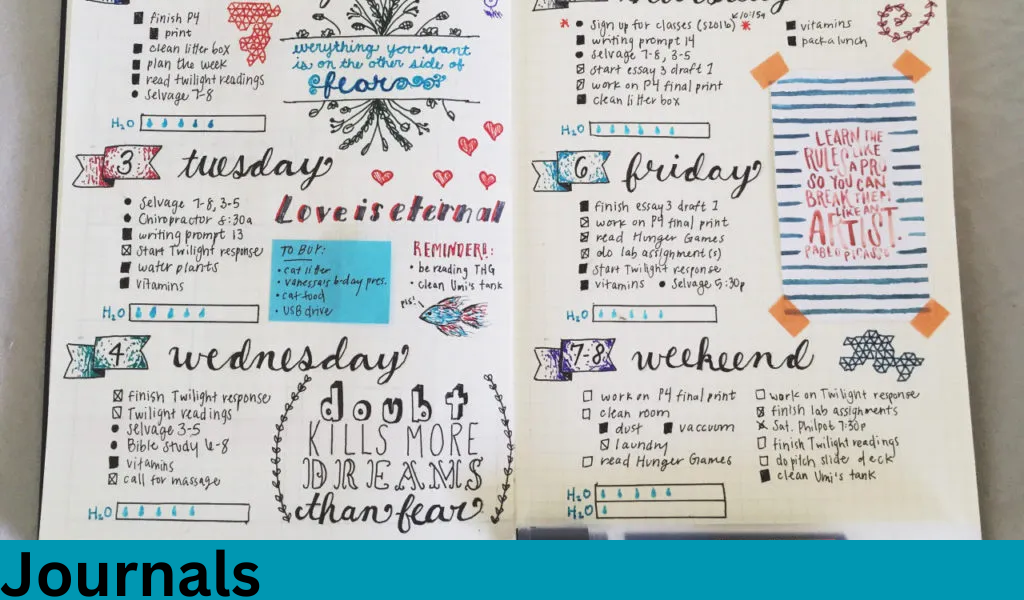 finish P4
print
clean litter box
plan the week
read twilight readings
Selvage 7-8
H₂O
everything you want
is on the other side of
fear
3
tuesday
Selvage 7-8, 3-5
Chiropractor 8:30a
writing prompt 13
Start Twilight response
water plants
vitamins
H₂O
Love is eternal
TO BUY:
• cat litter
• vanessa's b-day pres.
• cat food
• USB drive
REMINDER!:
• be reading THG
• clean Umi's tank
pls!
4
wednesday
finish Twilight response
Twilight readings
Selvage 3-5
Bible study 6-8
vitamins
call for massage
H₂O
doubt
KILLS MORE
DREAMS
than fear
sign up for classes (S2016)
10:15a
writing prompt 14
selvage 7-8, 3-5
start essay 3 draft 1
work on P4 final print
clean litter box
vitamins
pack a lunch
H₂O
6
friday
finish essay 3 draft 1
work on P4 final print
read Hunger Games
do lab assignment(s)
start Twilight response
vitamins • Selvage 5:30p
H₂O
LEARN THE
RULES LIKE
A PRO
SO YOU CAN
BREAK THEM
LIKE AN
ARTIST.
PABLO PICASSO
7-8
weekend
work on P4 final print
clean room
dust
vaccuum
laundry
read Hunger Games
work on Twilight response
finish lab assignments
Sat. Philpot 7:30p
finish Twilight readings
do pitch slide deck
clean Umi's tank
H₂O
H₂O
Journals